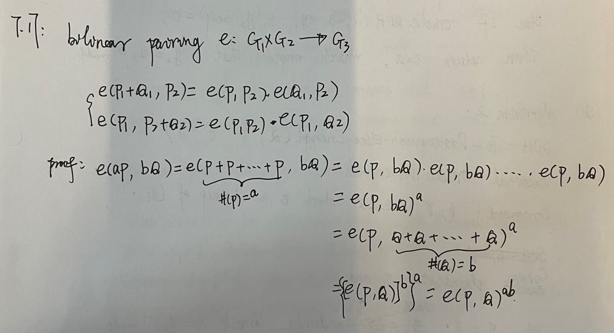 7.17: bilinear pairing e: G₁×G₂ → G₃
{ e(P₁+Q₁, P₂) = e(P₁, P₂)·e(Q₁, P₂)
e(P₁, P₂+Q₂) = e(P₁P₂)·e(P₁, Q₂)
proof: e(aP, bQ) = e(P+P+⋯+P, bQ) = e(P, bQ)·e(P, bQ)·⋯·e(P, bQ)
#(P)=a
= e(P, bQ)ᵃ
= e(P, Q+Q+⋯+Q)ᵃ
#(Q)=b
={[e(P,Q)]ᵇ}ᵃ = e(P, Q)ᵃᵇ